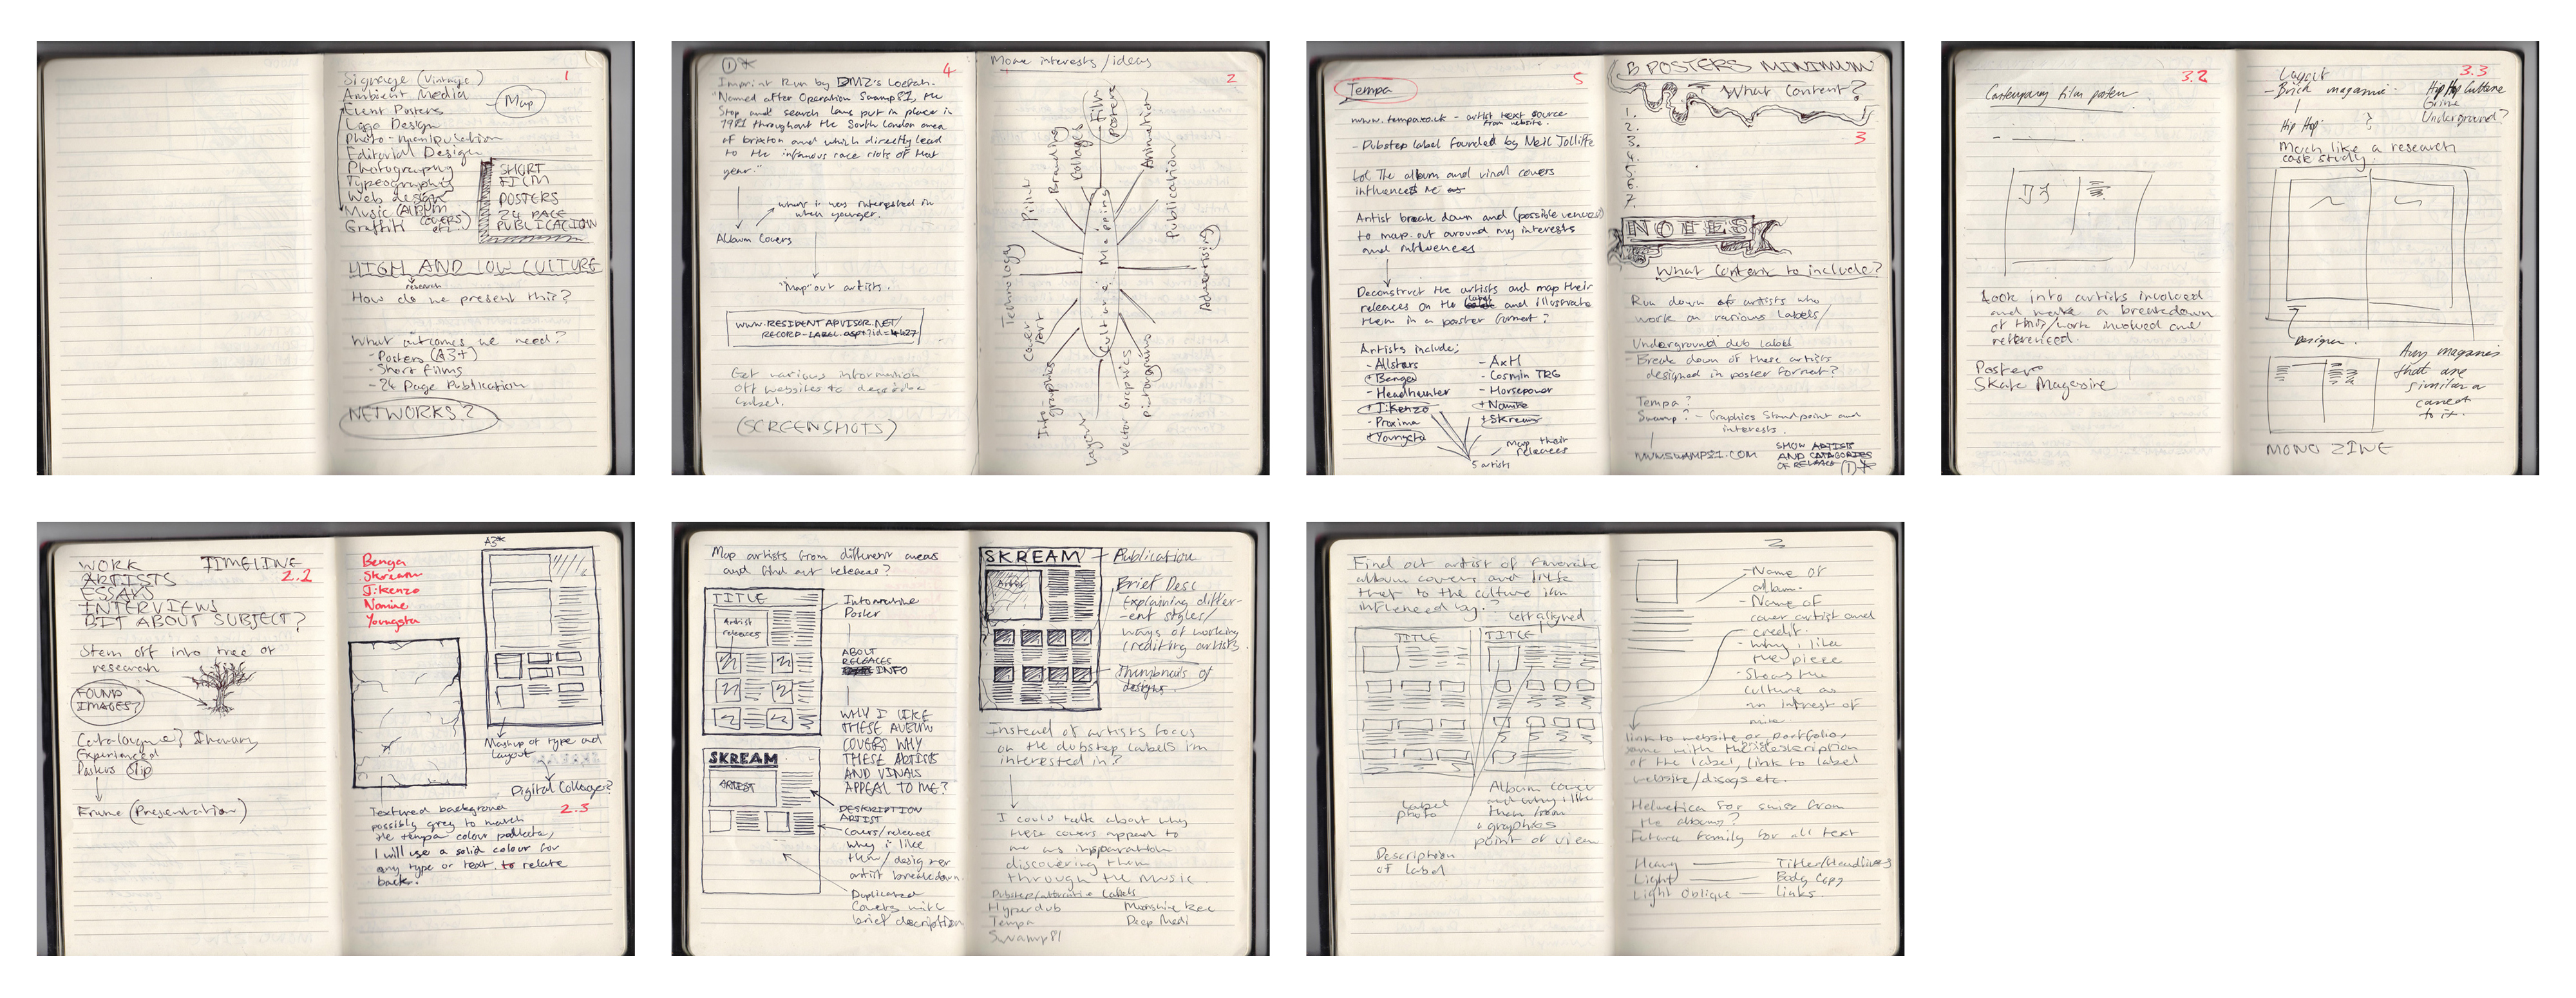 1
Signage (Vintage)
Ambient Media
Event Posters
Logo Design
Photo-manipulation
Editorial Design
Photography
Typeography
Web design
Music (ALBUM COVERS)
Graffiti etc.
Map
SHORT
FILM
POSTERS
24 PAGE
PUBLICATION
HIGH AND LOW CULTURE
research
How do we present this?
What outcomes we need?
- Posters (A3+)
- Short films
- 24 Page Publication
NETWORKS?
4
Imprint Run by DMZ's Loefah.
"Named after Operation Swamp81, the
stop and search laws put in place in
1981 throughout the South London area
of brixton and which directly lead
to the infamous race riots of that
year."
what I was interested in
when younger.
Album Covers
"Map" out artists.
WWW.RESIDENTADVISOR.NET/
RECORD-LABEL.aspx?id=4427
Get various information
off websites to describe
label.
(SCREENSHOTS)
More interests/ideas
2
Culture Mapping
Print
Branding
Collages
Film posters
Animation
Publication
Advertising
Technology
Cover art
Info graphics
Layout
Vector Graphics
pictograms
5
Tempa
www.tempa.co.uk - artist text source
from website.
- Dubstep label founded by Neil Jolliffe
lot The album and vinal covers
influences me as
Artist break down and (possible venues)
to map out around my interests
and influences
Deconstruct the artists and map their
releases on the label and illustrate
them in a poster format?
Artists include;
- Allstars
+ Benga
- Headhunter
+ J:Kenzo
- Proxima
+ Youngsta
- AxH
- Cosmin TRG
- Horsepower
+ Nomine
+ Skream
5 artists
map their
releases
POSTERS MINIMUM
What Content?
1.
2.
3.
4.
5.
6.
7.
3
NOTES
What Content to include?
Run down of artists who
work on various labels/
Underground dub label
Break down of these artists
designed in poster format?
Tempa?
Swamp? - Graphics Standpoint and
interests.
WWW.SWAMP81.COM
SHOW ARTISTS
AND CATAGORIES
OF RELEASE (1)*
3.2
Contemporary film posters
Look into artists involved
and make a breakdown
of this/work involved and
referenced.
Posters
Skate Magazine
3.3
Layout
- Brick magazine.
Hip Hop
Hip Hop Culture
Grime
Underground?
Much like a research
case study.
Designer.
Any magazines
that are
similar
to it.
MONO ZINE
WORK TIMELINE
2.2
ARTISTS
ESSAYS
INTERVIEWS
BIT ABOUT SUBJECT?
Stem off into tree of
research
FOUND
IMAGES?
Catalogue?
Experienced
Posters Slip
Frame (Presentation)
Benga
Skream
J:Kenzo
Nomine
Youngsta
A3*
Mashup of type and
layout
Digital Collage?
2.3
Textured background
possibly grey to match
the tempa colour palette,
I will use a solid colour for
any type or text to relate
back.
Map artists from different areas
and find out releases?
TITLE
Artist
releases
Informative
Poster
ABOUT
RELEACES
INFO
WHY I LIKE
THESE ALBUM
COVERS WHY
THESE ARTISTS
AND VINALS
APPEAL TO ME?
SKREAM
ARTIST
DESKRIPTION
ARTIST
Covers/releases
why i like
them/designer
artist breakdown.
Duplicated
Covers with
brief description
SKREAM
Artist
Publication
Brief Desc
Explaining differ-
ent styles/
ways of working
crediting artists.
Thumbnails of
designs.
Instead of artists focus
on the dubstep labels im
interested in?
I could talk about why
these covers appeal to
me as inspiration
discovering them
through the music.
Dubstep/alternative labels
Hyperdub
Tempa
Swamp81
Moonshine Rec
Deep Medi
Find out artist of favorite
album covers and link
that to the culture im
influenced by?
Left aligned
TITLE
TITLE
label
photo
Description
of label
Album cover
and why i like
them from
a graphics
point of view
- Name of
album.
- Name of
cover artist and
credit.
- Why i like
the piece
- Shows the
culture as
an intrest of
mine
link to website or portfolio,
same with the brief description
of the label, link to label
website/discogs etc.
Helvetica for swiss from
the albums?
Futura family for all text
Heavy Titles/Headlines
Light Body Copy
Light Oblique links